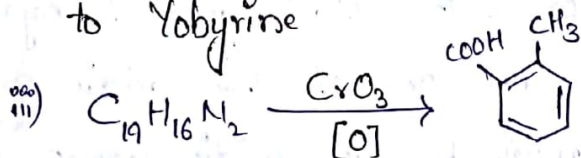 to Yobyrine
iii) C19H16N2 CrO3 [O] COOH CH3